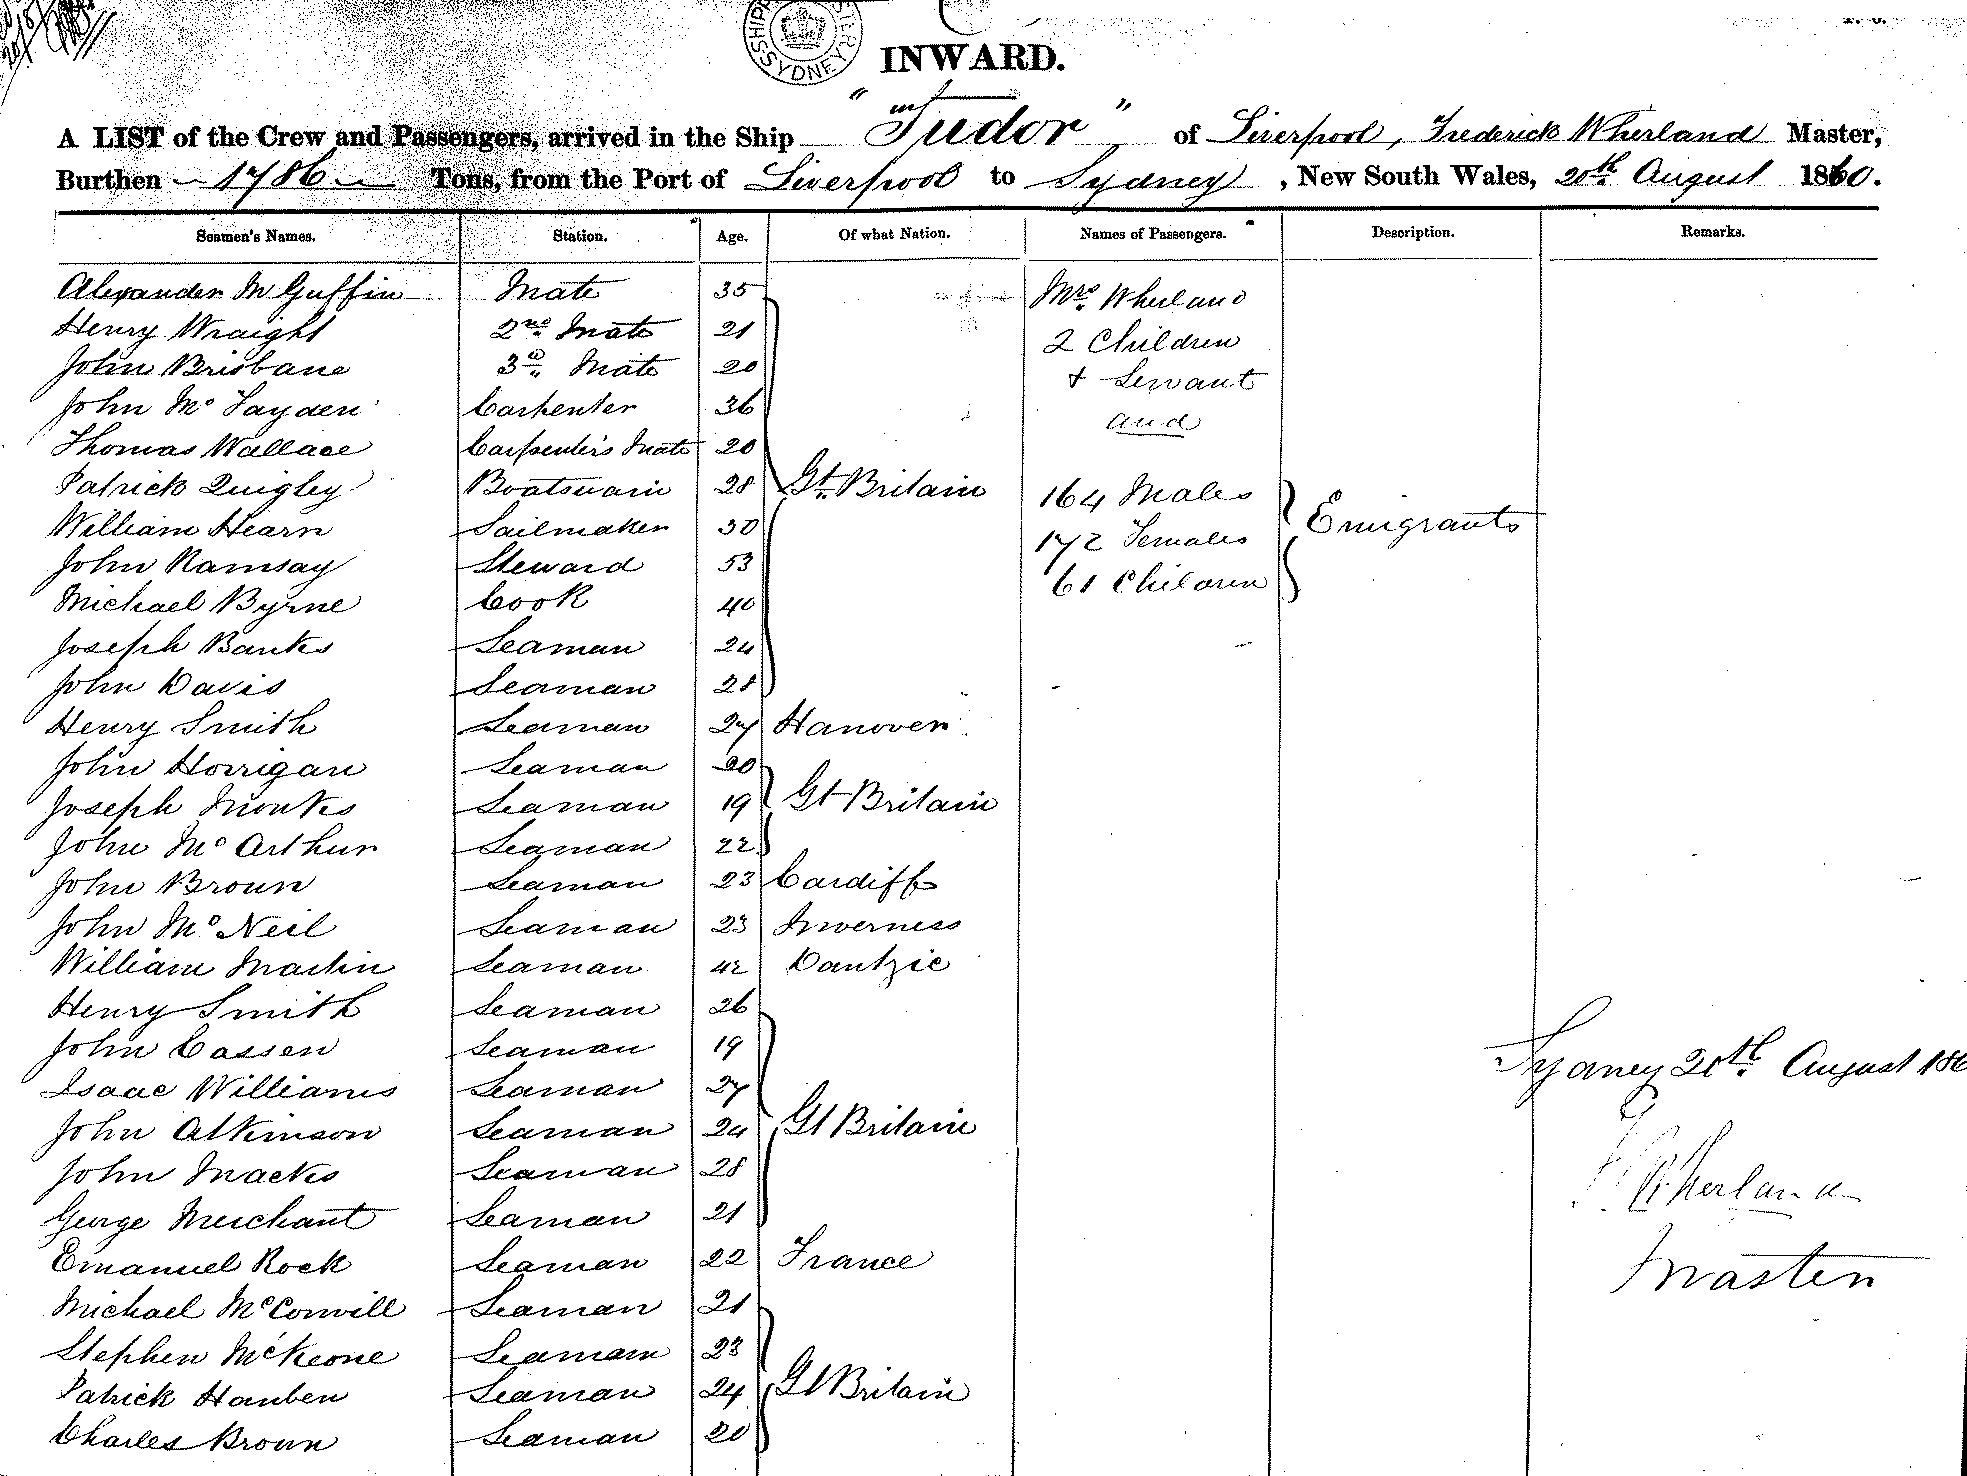 SHIPP
SYDNEY
INWARD.
A LIST of the Crew and Passengers, arrived in the Ship "Tudor" of Liverpool, Frederick Wherland Master,
Burthen 1786 Tons, from the Port of Liverpool to Sydney, New South Wales, 20th August 1860.
Seamen's Names. Station. Age. Of what Nation. Names of Passengers. Description. Remarks.
Alexander Mc Guffin Mate 35 Mrs Wherland
Henry Wraight 2nd Mate 21 2 Children
John Brisbane 3d Mate 20 + Servant
John Mc Fayden Carpenter 36 and
Thomas Wallace Carpenter's Mate 20
Patrick Quigley Boatswain 28 Gt. Britain 164 Males
William Hearn Sailmaker 30 172 Females Emigrants
John Ramsay Steward 53 61 Children
Michael Byrne Cook 40
Joseph Banks Seaman 24
John Davis Seaman 28
Henry Smith Seaman 27 Hanover
John Horrigan Seaman 20
Joseph Monks Seaman 19 Gt Britain
John Mc Arthur Seaman 22
John Brown Seaman 23 Cardiff
John Mc Neil Seaman 23 Inverness
William Martin Seaman 42 Dantzic
Henry Smith Seaman 26
John Cassen Seaman 19
Isaac Williams Seaman 27
John Atkinson Seaman 24 Gt Britain
John Macks Seaman 28
George Merchant Seaman 21
Emanuel Rock Seaman 22 France
Michael McConvill Seaman 21
Stephen McKeone Seaman 23
Patrick Hanben Seaman 24 Gt Britain
Charles Brown Seaman 20
Sydney 20th August 186
F Wherland
Master